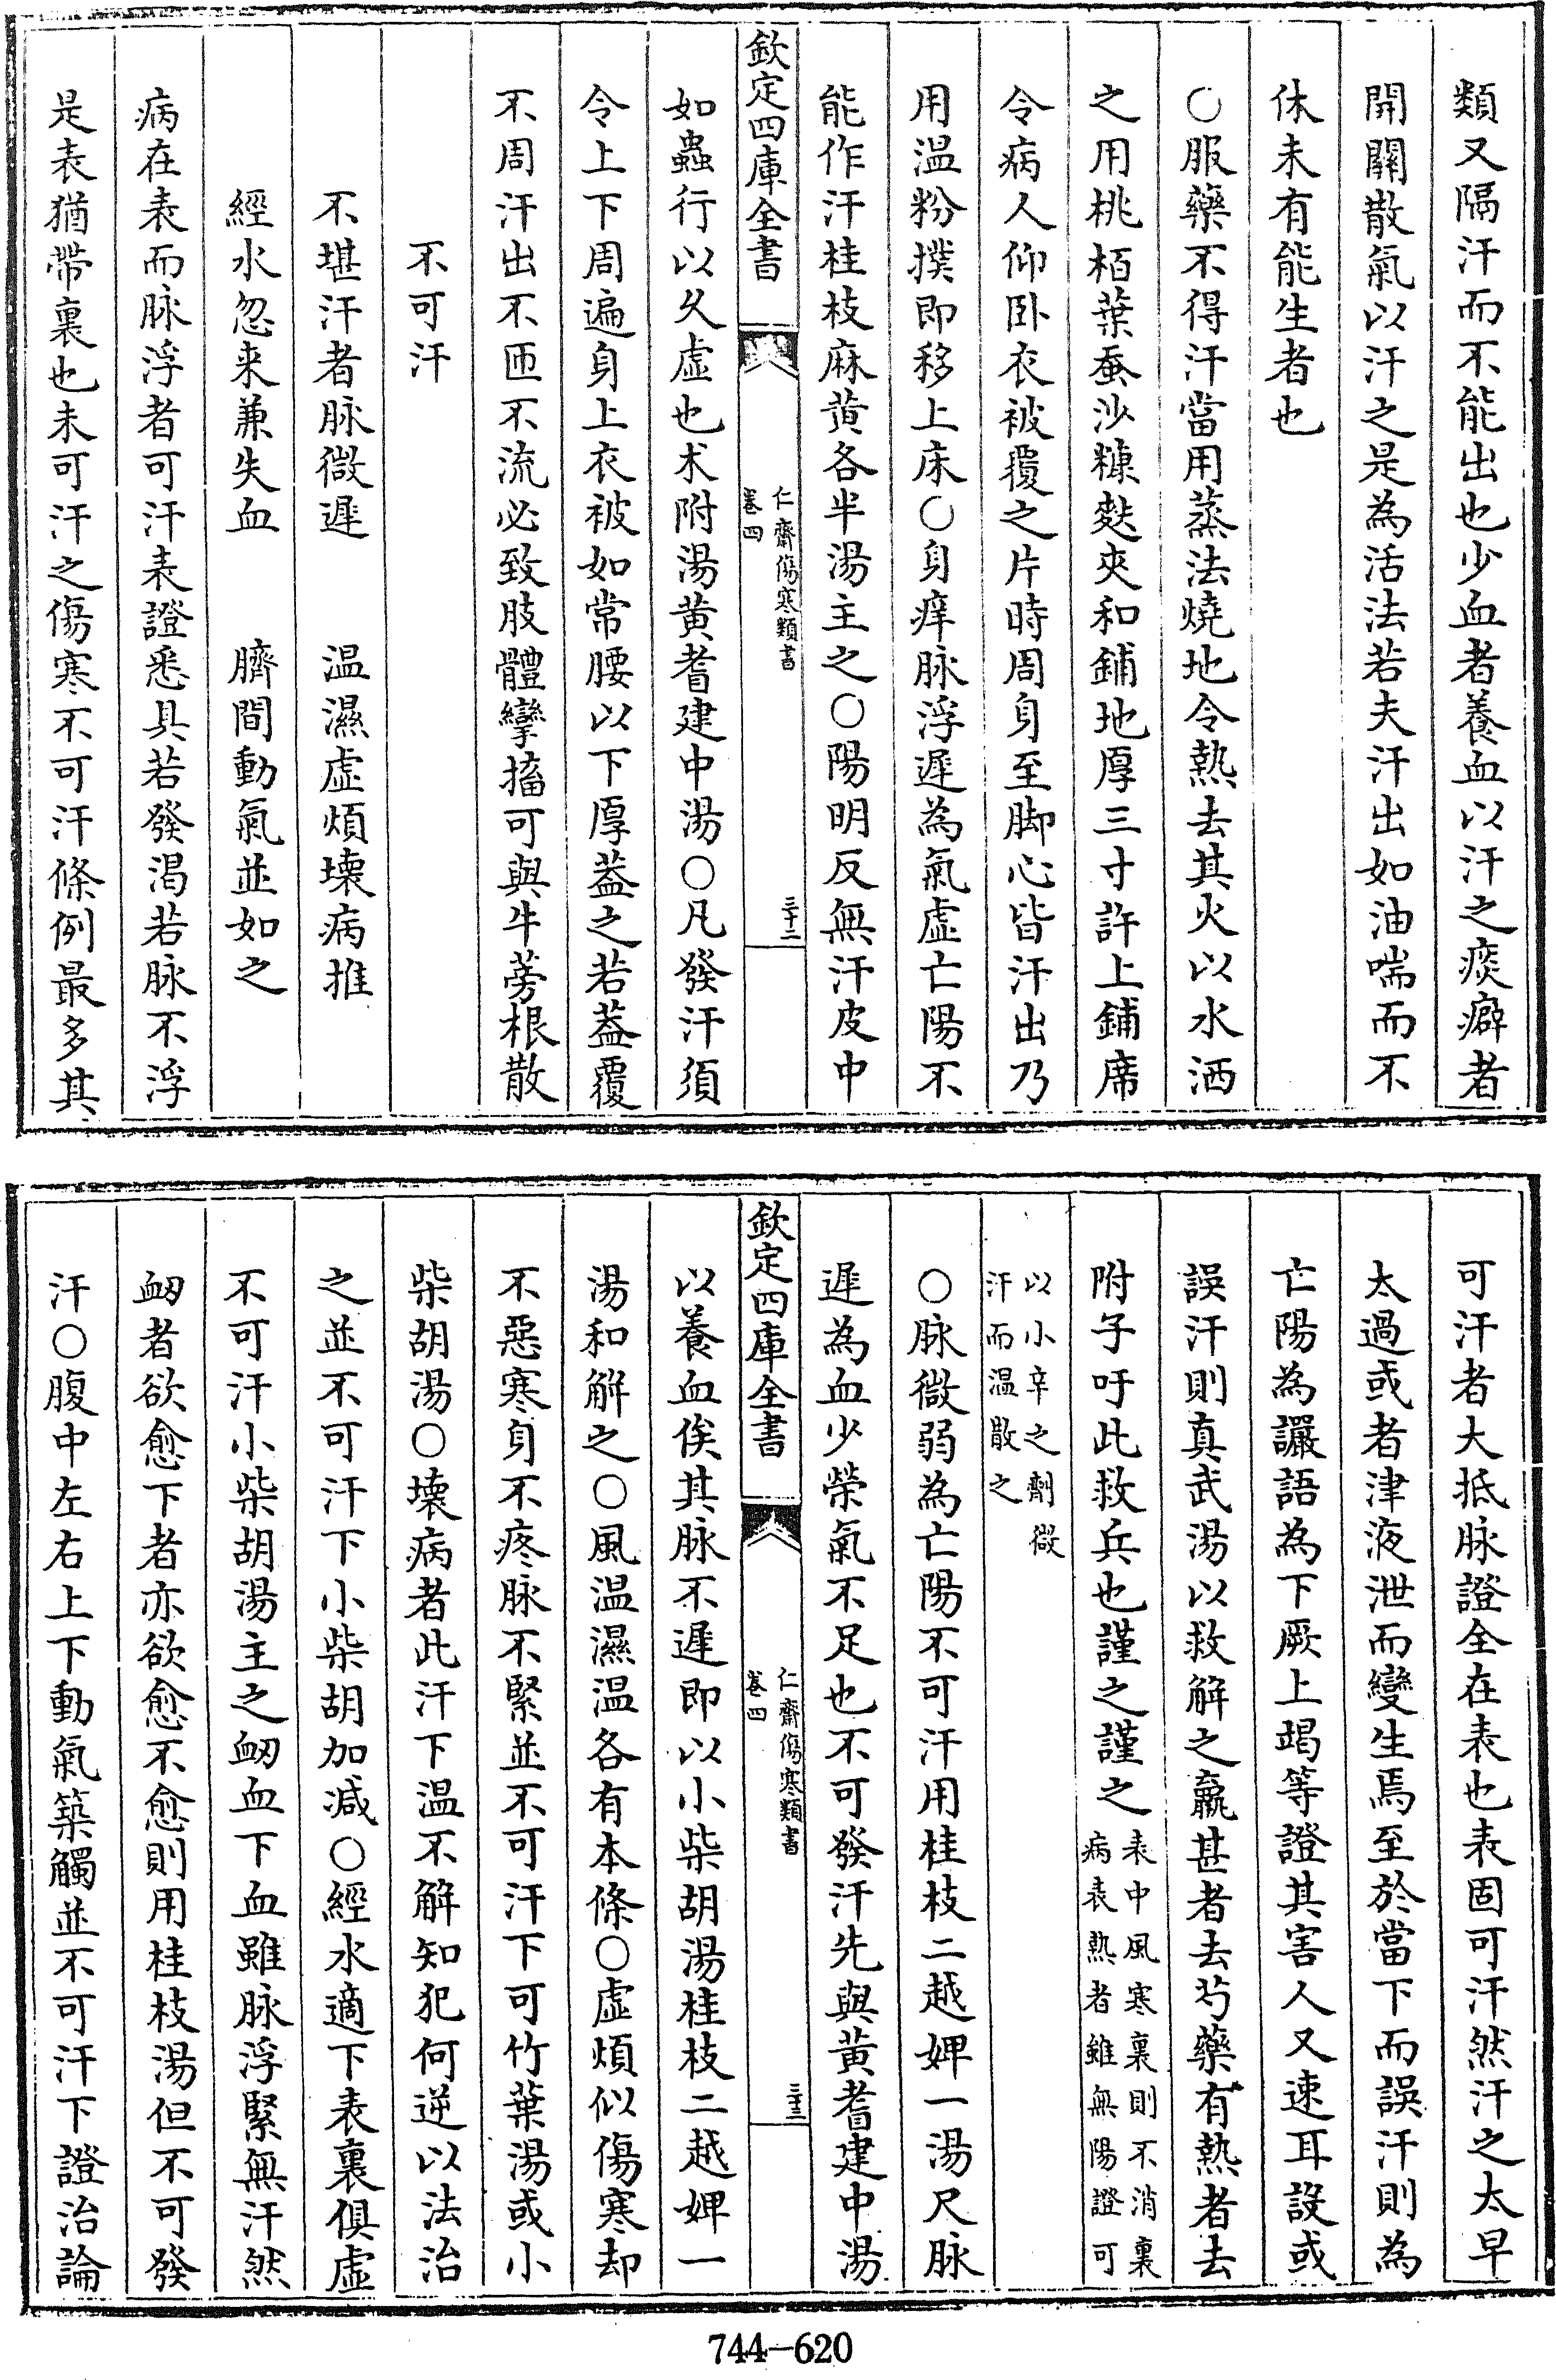 類又隔汗而不能出也少血者養血以汗之痰癖者
開關散氣以汗之是為活法若夫汗出如油喘而不
休未有能生者也
○服藥不得汗當用蒸法燒地令熱去其火以水洒
之用桃栢葉蚕沙糠麩夾和鋪地厚三寸許上鋪席
令病人仰卧衣被覆之片時周身至脚心皆汗出乃
用温粉撲即移上床○身痒脉浮遲為氣虛亡陽不
能作汗桂枝麻黄各半湯主之○陽明反無汗皮中
欽定四庫全書
仁齋傷寒類書
卷四
三十二
如蟲行以久虛也术附湯黄耆建中湯○凡發汗須
令上下周遍身上衣被如常腰以下厚葢之若葢覆
不周汗出不匝不流必致肢體攣搐可與牛蒡根散
不可汗
不堪汗者脉微遲 温濕虛煩壞病推
經水忽来兼失血 臍間動氣並如之
病在表而脉浮者可汗表證悉具若發渴若脉不浮
是表猶帶裏也未可汗之傷寒不可汗條例最多其
可汗者大抵脉證全在表也表固可汗然汗之太早
太過或者津液泄而變生焉至於當下而誤汗則為
亡陽為讝語為下厥上竭等證其害人又速耳設或
誤汗則真武湯以救解之羸甚者去芍藥有熱者去
附子吁此救兵也謹之謹之表中風寒裏則不消裏
病表熱者雖無陽證可
以小辛之劑微
汗而温散之
○脉微弱為亡陽不可汗用桂枝二越婢一湯尺脉
遲為血少榮氣不足也不可發汗先與黄耆建中湯
欽定四庫全書
仁齋傷寒類書
卷四
三十三
以養血俟其脉不遲即以小柴胡湯桂枝二越婢一
湯和解之○風温濕温各有本條○虛煩似傷寒却
不惡寒身不疼脉不緊並不可汗下可竹葉湯或小
柴胡湯○壞病者此汗下温不解知犯何逆以法治
之並不可汗下小柴胡加减○經水適下表裏俱虛
不可汗小柴胡湯主之衂血下血雖脉浮緊無汗然
衂者欲愈下者亦欲愈不愈則用桂枝湯但不可發
汗○腹中左右上下動氣築觸並不可汗下證治論
744-620